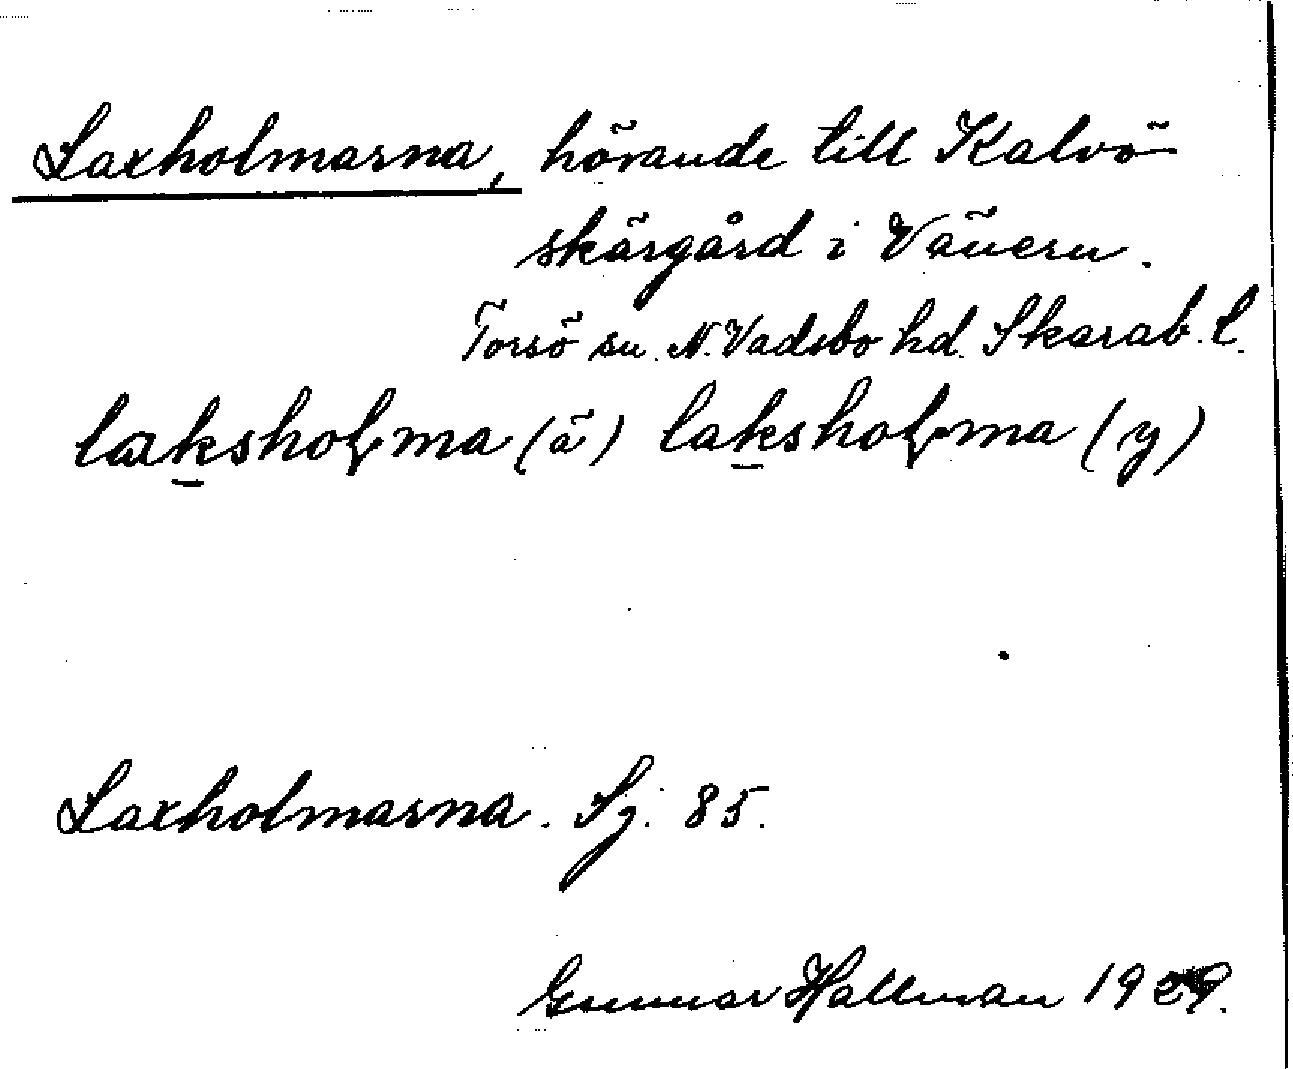 Laxholmarna, hörande till Kalvö
skärgård i Vänern.
Torsö sn. N. Vadsbo hd. Skarab. L.
laksholma (ä) laksholma (y)
Laxholmarna. Sj. 85.
Gunnar Hallman 1929.